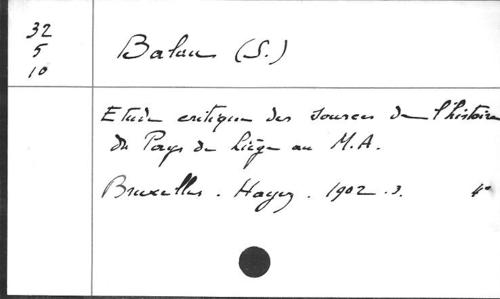 32
5
10
Balau (S.)
Etude critique des sources de l'histoire
du Pays de Liège au M.A.
Bruxelles. Hayez. 1902.3. 4°